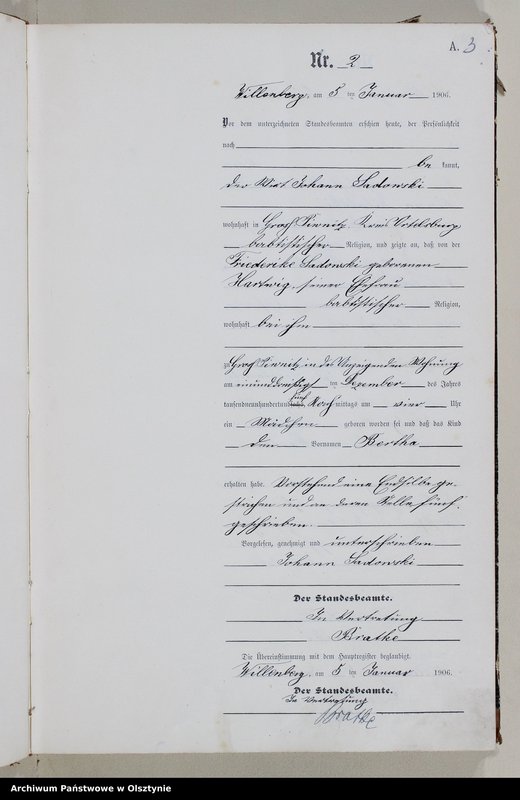 A. 3
Nr. 2
Willenberg, am 5 ten Januar 1906.
Vor dem unterzeichneten Standesbeamten erschien heute, der Persönlichkeit
nach
be kannt,
der Wirt Johann Sadowski
wohnhaft in Groß Piwnitz, Kreis Ortelsburg
babtistischer Religion, und zeigte an, daß von der
Friederike Sadowski geborenen
Hartwig, seiner Ehefrau
babtistischer Religion,
wohnhaft bei ihm
zu Groß Piwnitz in des Anzeigenden Wohnung
am einunddreißigsten Dezember des Jahres
tausendneunhundertund fünf Nachmittags um vier Uhr
ein Mädchen geboren worden sei und daß das Kind
den Vornamen Bertha
erhalten habe. Vorstehend eine Endsilbe ge-
strichen und an deren Stelle „fünf“
geschrieben.
Vorgelesen, genehmigt und unterschrieben
Johann Sadowski
Der Standesbeamte.
In Vertretung
Bratke
Die Übereinstimmung mit dem Hauptregister beglaubigt.
Willenberg, am 5 ten Januar 1906.
Der Standesbeamte.
In Vertretung
Bratke
Archiwum Państwowe w Olsztynie